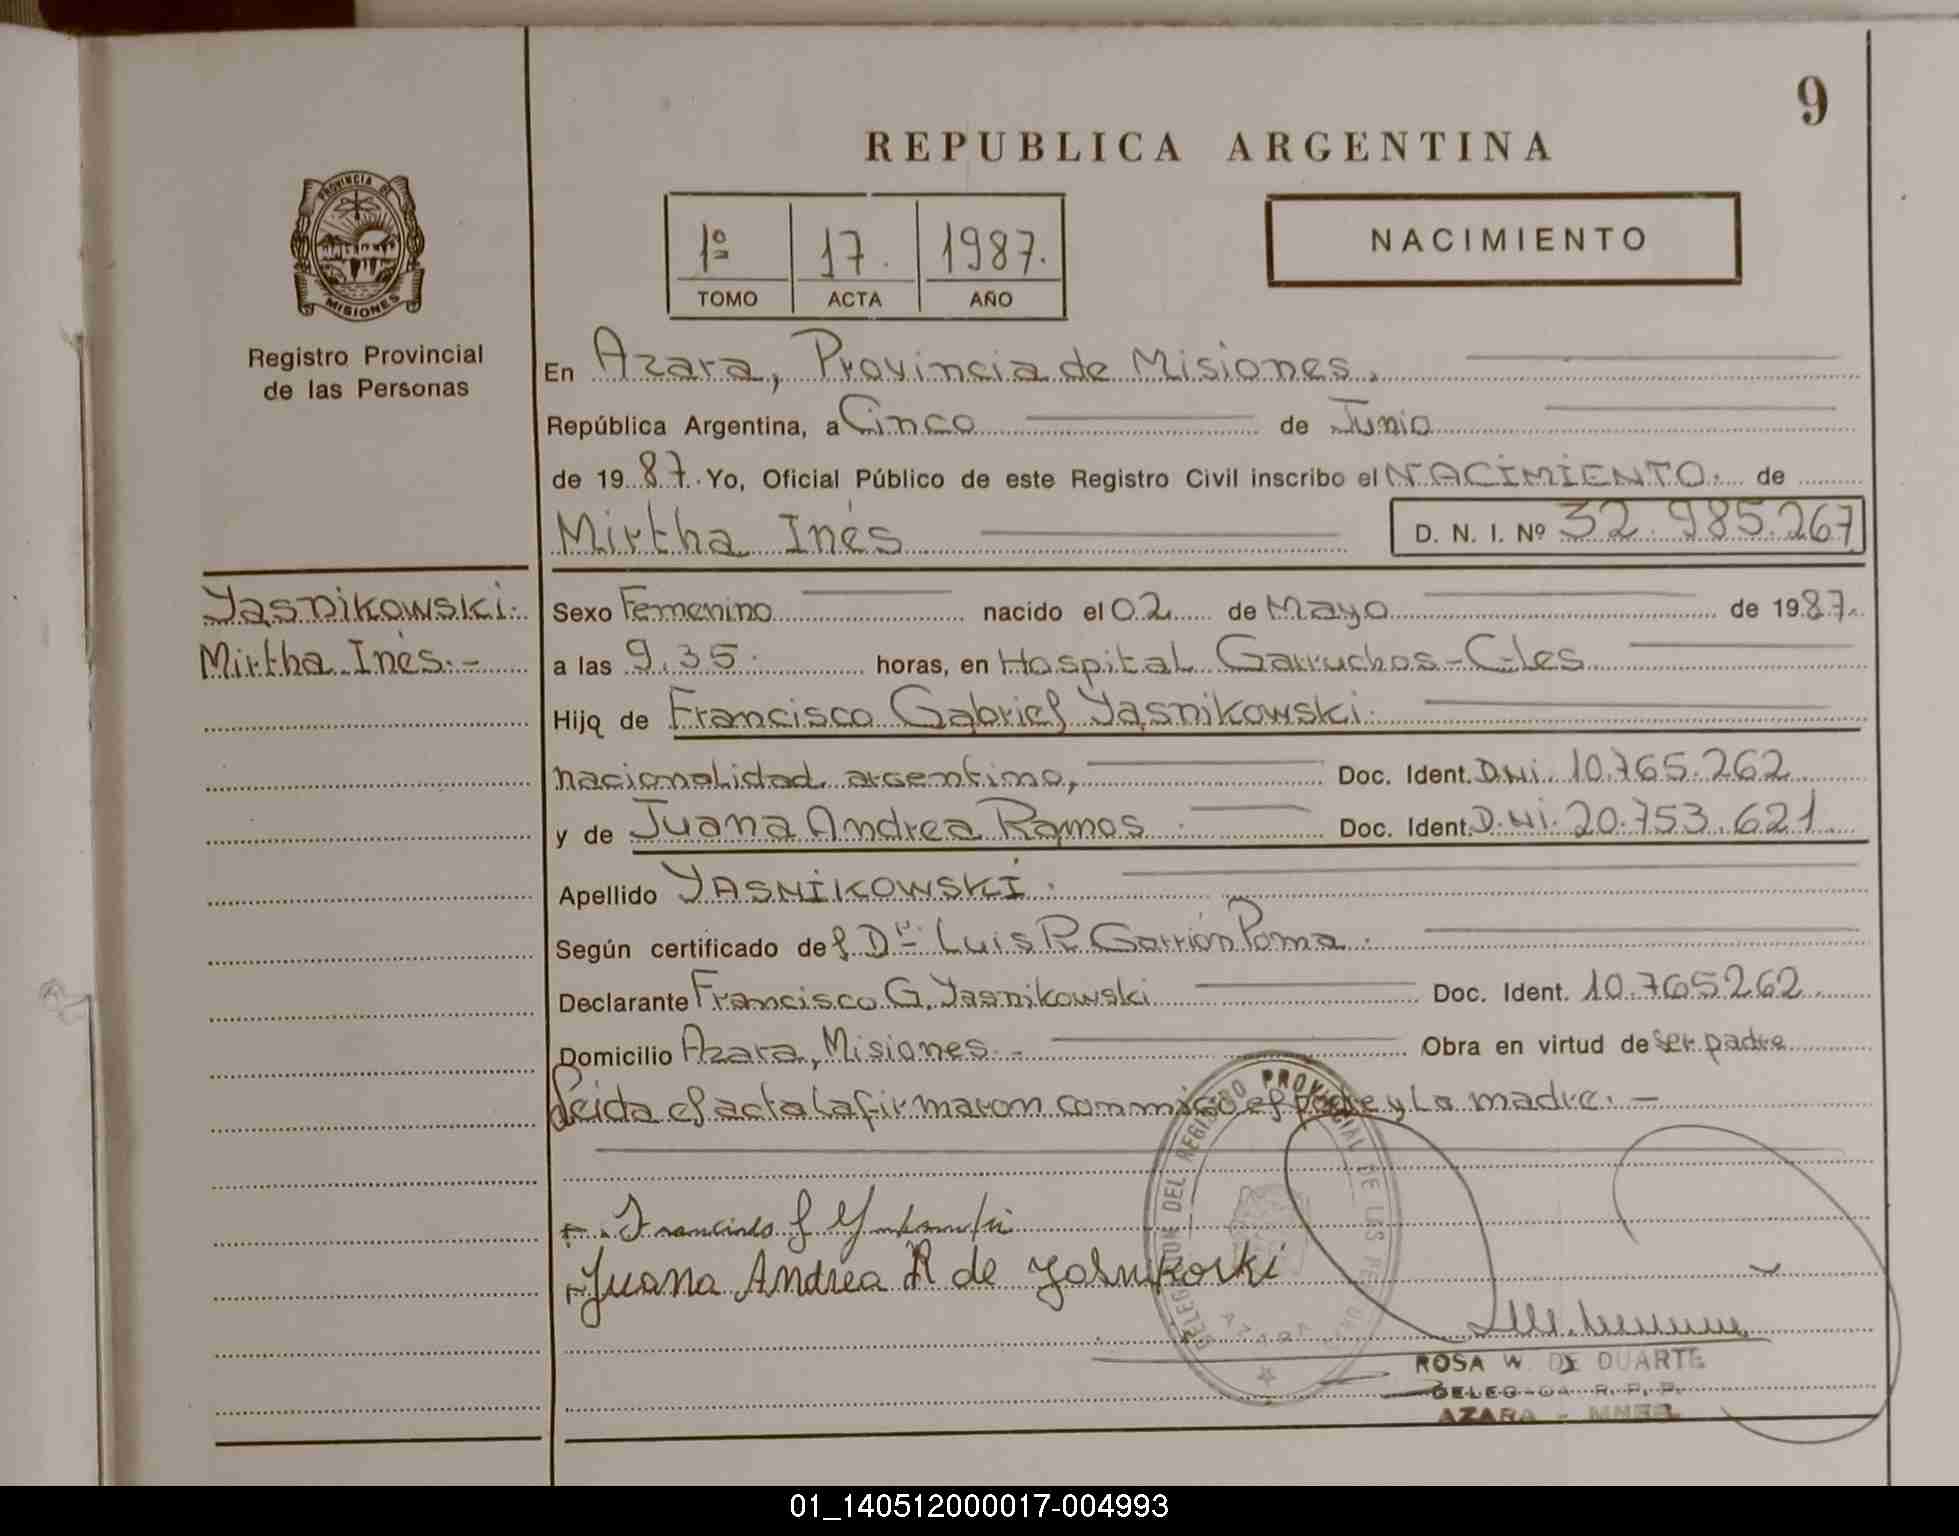 9
REPUBLICA ARGENTINA
PROVINCIA DE
MISIONES
Registro Provincial
de las Personas
1º 17. 1987.
TOMO ACTA AÑO
NACIMIENTO
En Azara, Provincia de Misiones.
República Argentina, a Cinco de Junio
de 1987. Yo, Oficial Público de este Registro Civil inscribo el NACIMIENTO. de
Mirtha Inés D. N. I. Nº 32.985.267
Yasnikowski.
Mirtha Inés.-
Sexo Femenino nacido el 02 de Mayo de 1987.
a las 9.35. horas, en Hospital Garruchos-C-les
Hijo de Francisco Gabriel Yasnikowski.
nacionalidad argentino, Doc. Ident. D.Ni. 10.765.262
y de Juana Andrea Ramos. Doc. Ident. D.Ni. 20.753.621
Apellido YASNIKOWSKI.
Según certificado del Dr. Luis R. Garrión Poma.
Declarante Francisco G. Yasnikowski Doc. Ident. 10.765262
Domicilio Azara, Misiones.- Obra en virtud de ser padre
Leida el acta la firmaron conmigo el padre y la madre.-
Juana Andrea R de Yasnikoski
DELEGACION DEL REGISTRO PROVINCIAL DE LAS PERSONAS
AZARA
ROSA W. DE DUARTE
DELEGADA R. P. P.
AZARA - MNES.
01_140512000017-004993